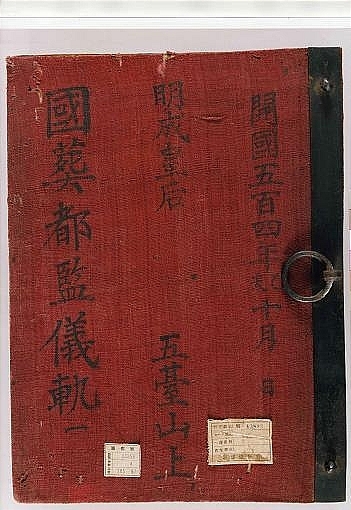 開國五百四年乙未十月 日
明成皇后
五臺山上
國葬都監儀軌 一